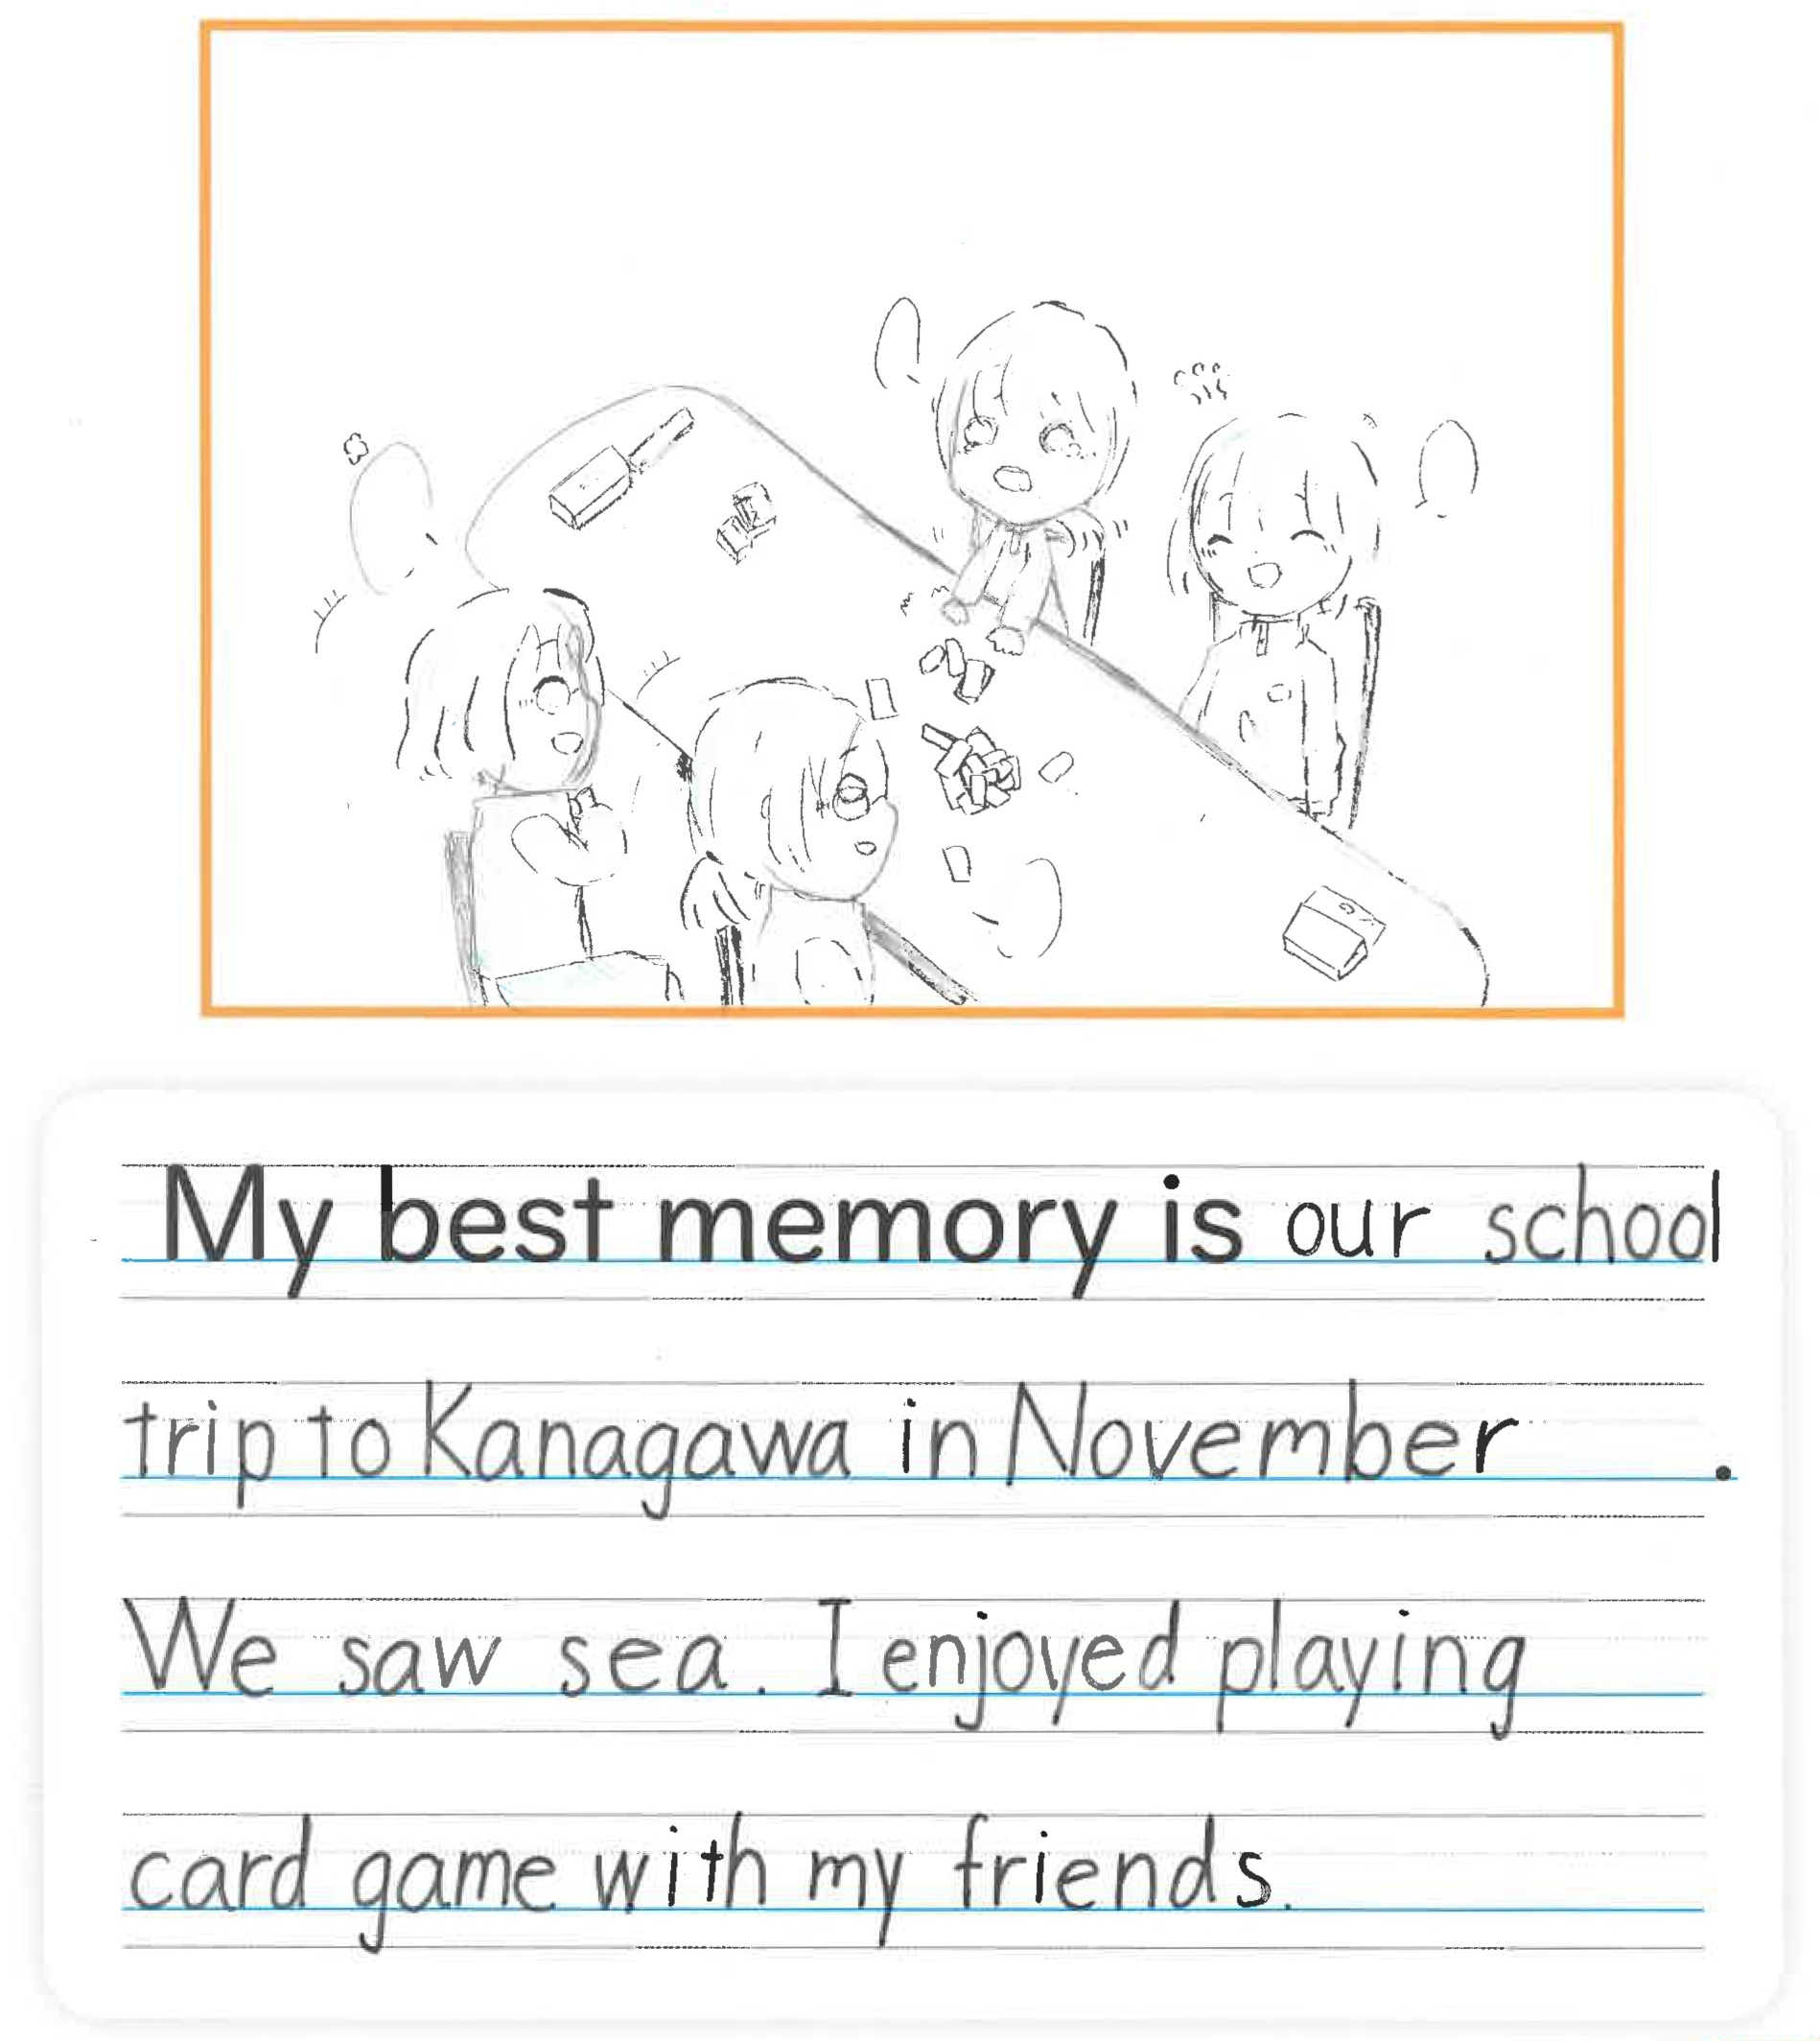 My best memory is our school
trip to Kanagawa in November .
We saw sea. I enjoyed playing
card game with my friends.